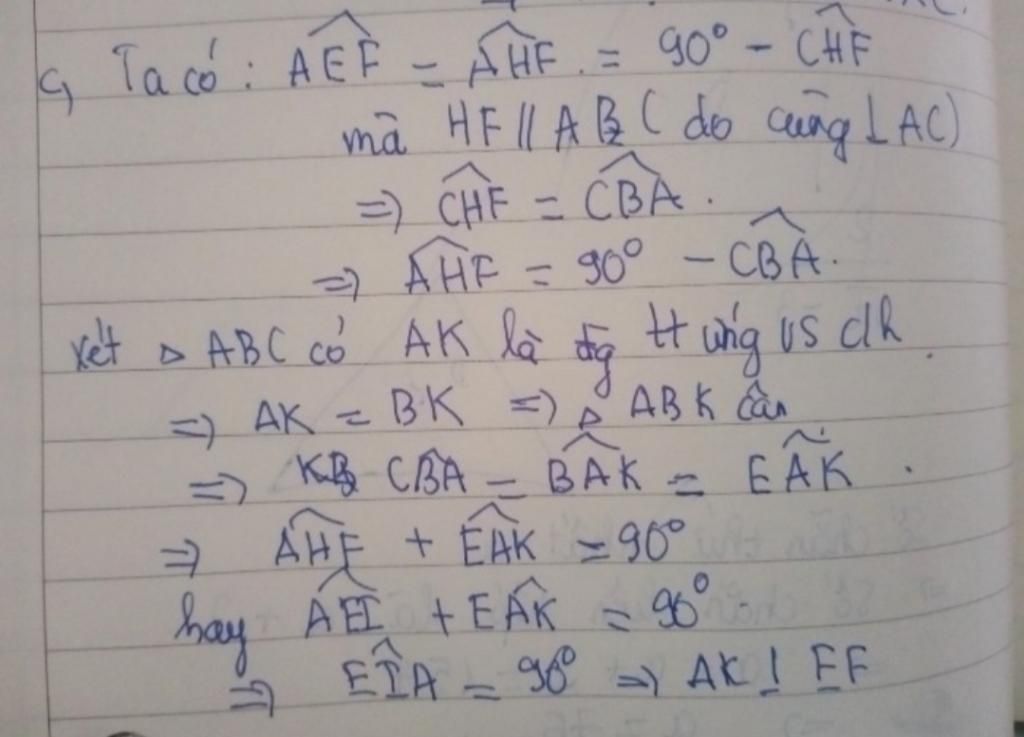 c, Ta có: AÊF = AĤF = 90° - CĤF
mà HF // AB (do cùng ⊥ AC)
=> CĤF = CB̂A.
=> AĤF = 90° - CB̂A.
xét ▵ ABC có AK là đg tt ứng vs ch
=> AK = BK => ▵ ABK cân
=> CB̂A = BÂK = EÂK.
=> AĤF + EÂK = 90°
hay AÊI + EÂK = 90°
=> EÎA = 90° => AK ⊥ EF